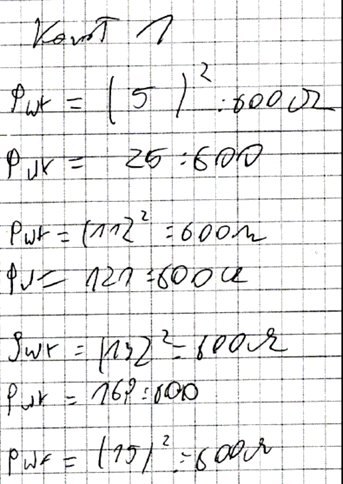 Pwr = (5)² : 600 Ω
Pwr = 25 : 600
Pwr = (11)² : 600 Ω
P = 121 : 600 Ω
Pwr = (13)² : 600 Ω
Pwr = 169 : 600
Pwr = (15)² : 600 Ω